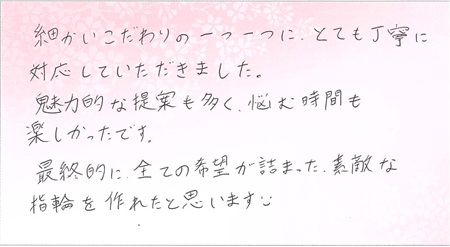 細かいこだわりの一つ一つに、とても丁寧に
対応していただきました。
魅力的な提案も多く、悩む時間も
楽しかったです。
最終的に、全ての希望が詰まった、素敵な
指輪を作れたと思います